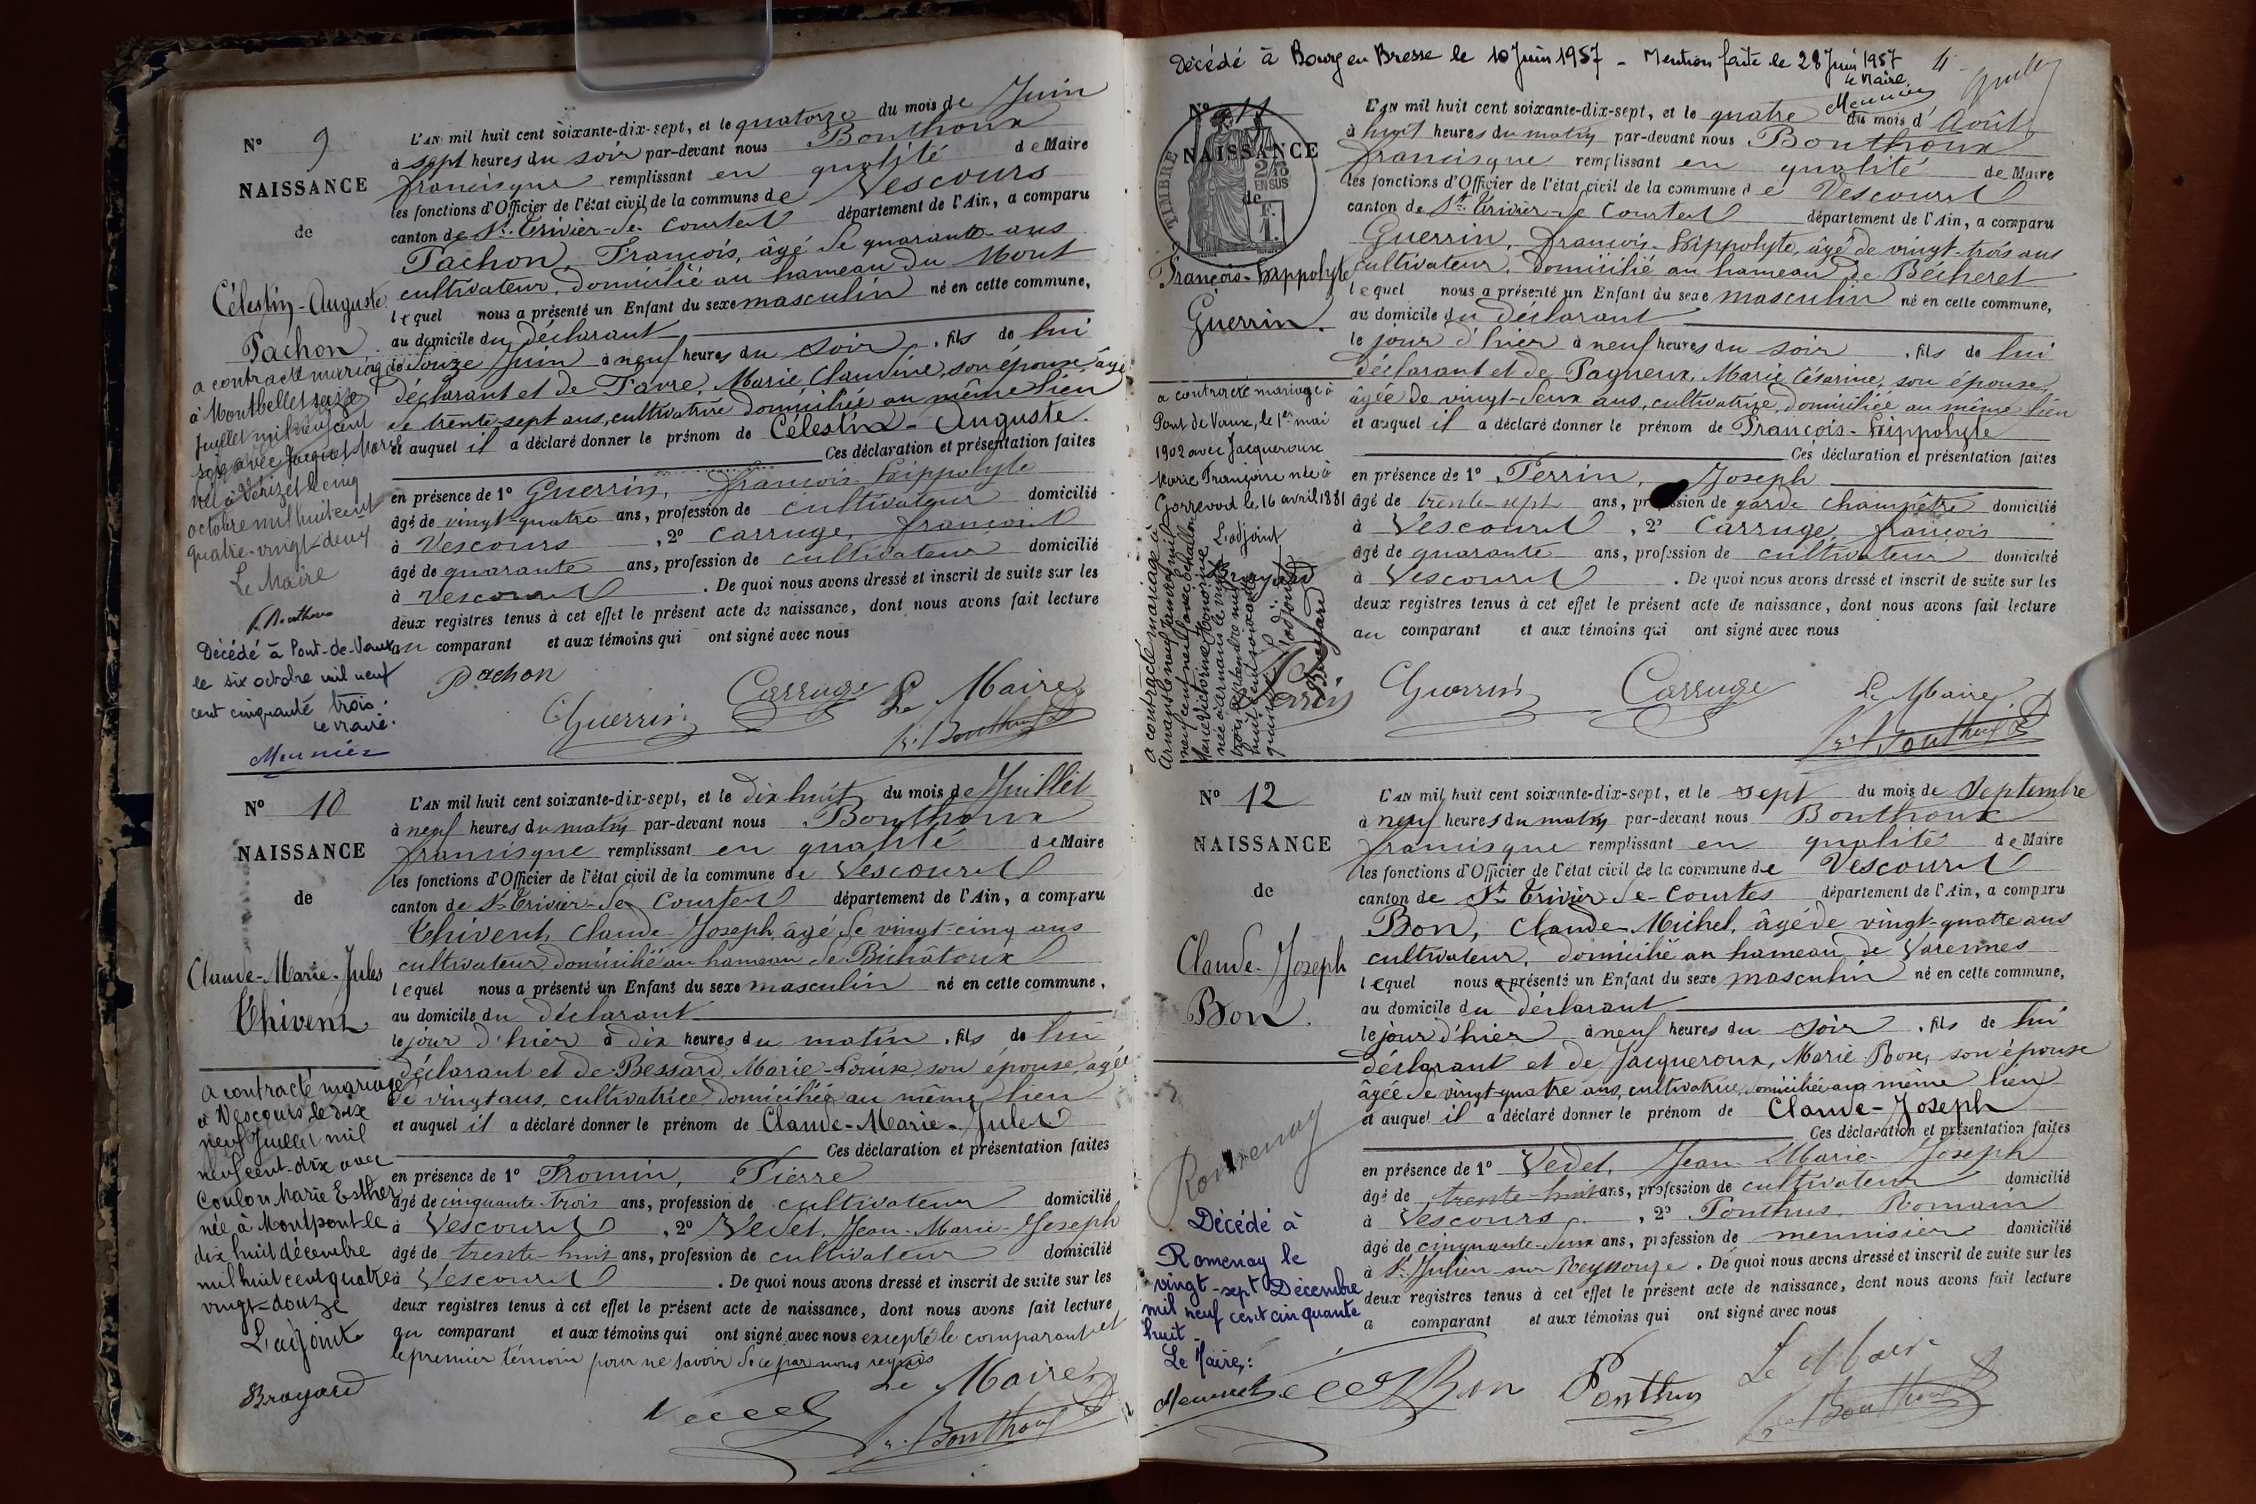 N° 9
NAISSANCE
de
Célestin-Auguste
Pachon
a contracté mariage
à Montbellet seize
juillet mil neuf cent
avec Jacquet Marie
née à Vérizet le cinq
octobre mil huit cent
quatre-vingt-deux
Le Maire
Décédé à Pont-de-Vaux
le six octobre mil neuf
cent cinquante trois.
Le Maire.
Meunier
L'AN mil huit cent soixante-dix-sept, et le quatorze du mois de Juin
à sept heures du soir par-devant nous Bouthoux
francisque remplissant en qualité de Maire
les fonctions d'Officier de l'état civil de la commune de Vescours
canton de St Trivier-de-Courtes département de l'Ain, a comparu
Pachon, François, âgé de quarante ans
cultivateur, domicilié au hameau du Mont
lequel nous a présenté un Enfant du sexe masculin né en cette commune,
au domicile du déclarant
le douze Juin à neuf heures du soir, fils de lui
déclarant et de Favre, Marie Claudine, son épouse, âgée
de trente-sept ans, cultivatrice domiciliée au même lieu
et auquel il a déclaré donner le prénom de Célestin-Auguste.
Ces déclaration et présentation faites
en présence de 1° Guerrin, françois hippolyte
âgé de vingt-quatre ans, profession de cultivateur domicilié
à Vescours, 2° Carruge, françois
âgé de quarante ans, profession de cultivateur domicilié
à Vescours. De quoi nous avons dressé et inscrit de suite sur les
deux registres tenus à cet effet le présent acte de naissance, dont nous avons fait lecture
au comparant et aux témoins qui ont signé avec nous
Pachon
Guerrin Carruge Le Maire
fr. Bouthoux
N° 10
NAISSANCE
de
Claude-Marie-Jules
Thivent
a contracté mariage
à Vescours le dix
neuf Juillet mil
neuf cent-dix avec
Coulon Marie Esther
née à Montpont le
dix huit décembre
mil huit cent quatre
vingt-douze
L'adjoint
Broyard
L'AN mil huit cent soixante-dix-sept, et le dix huit du mois de Juillet
à neuf heures du matin par-devant nous Bouthoux
francisque remplissant en qualité de Maire
les fonctions d'Officier de l'état civil de la commune de Vescours
canton de St Trivier-de-Courtes département de l'Ain, a comparu
Thivent, Claude-Joseph, âgé de vingt-cinq ans
cultivateur domicilié au hameau de Bichâtoux
lequel nous a présenté un Enfant du sexe masculin né en cette commune,
au domicile du déclarant
le jour d'hier à dix heures du matin, fils de lui
déclarant et de Bessard, Marie-Louise, son épouse, âgée
de vingt ans, cultivatrice domiciliée au même lieu
et auquel il a déclaré donner le prénom de Claude-Marie-Jules
Ces déclaration et présentation faites
en présence de 1° Fromin, Pierre
âgé de cinquante-trois ans, profession de cultivateur domicilié
à Vescours, 2° Vedet, Jean-Marie-Joseph
âgé de trente-huit ans, profession de cultivateur domicilié
à Vescours. De quoi nous avons dressé et inscrit de suite sur les
deux registres tenus à cet effet le présent acte de naissance, dont nous avons fait lecture
au comparant et aux témoins qui ont signé avec nous excepté le comparant et
le premier témoin pour ne savoir de ce par nous requis
Le Maire
Vedet fr. Bouthoux
Décédé à Bourg en Bresse le 10 Juin 1957 - Mention faite le 28 Juin 1957
Le Maire
Meunier
4
N° 11
NAISSANCE
de
TIMBRE
2/10
EN SUS
François-hippolyte
Guerrin.
a contracté mariage à
Pont de Vaux, le 1er mai
1902 avec Jacqueroux
Marie Françoise née à
Gorrevod le 16 avril 1881
L'adjoint
Broyard
a contracté mariage à
L'adjoint
Broyard
L'AN mil huit cent soixante-dix-sept, et le quatre du mois d'Août
à huit heures du matin par-devant nous Bouthoux
francisque remplissant en qualité de Maire
les fonctions d'Officier de l'état civil de la commune de Vescours
canton de St Trivier-de-Courtes département de l'Ain, a comparu
Guerrin, françois-hippolyte, âgé de vingt-trois ans
cultivateur, domicilié au hameau de Bécheret
lequel nous a présenté un Enfant du sexe masculin né en cette commune,
au domicile du déclarant
le jour d'hier à neuf heures du soir, fils de lui
déclarant et de Pagneux, Marie Césarine, son épouse,
âgée de vingt-deux ans, cultivatrice, domiciliée au même lieu
et auquel il a déclaré donner le prénom de François-hippolyte
Ces déclaration et présentation faites
en présence de 1° Perrin, Joseph
âgé de trente-sept ans, profession de garde champêtre domicilié
à Vescours, 2° Carruge, françois
âgé de quarante ans, profession de cultivateur domicilié
à Vescours. De quoi nous avons dressé et inscrit de suite sur les
deux registres tenus à cet effet le présent acte de naissance, dont nous avons fait lecture
au comparant et aux témoins qui ont signé avec nous
Perrin Guerrin Carruge Le Maire
fr. Bouthoux
N° 12
NAISSANCE
de
Claude-Joseph
Bon.
Romenay
Décédé à
Romenay le
vingt-sept Décembre
mil neuf cent cinquante
huit.
Le Maire:
Meunier
L'AN mil huit cent soixante-dix-sept, et le sept du mois de Septembre
à neuf heures du matin par-devant nous Bouthoux
francisque remplissant en qualité de Maire
les fonctions d'Officier de l'état civil de la commune de Vescours
canton de St Trivier-de-Courtes département de l'Ain, a comparu
Bon, Claude-Michel, âgé de vingt-quatre ans
cultivateur, domicilié au hameau de Varennes
lequel nous a présenté un Enfant du sexe masculin né en cette commune,
au domicile du déclarant
le jour d'hier à neuf heures du soir, fils de lui
déclarant et de Jacqueroux, Marie Rose, son épouse
âgée de vingt-quatre ans, cultivatrice, domiciliée au même lieu
et auquel il a déclaré donner le prénom de Claude-Joseph
Ces déclaration et présentation faites
en présence de 1° Vedet, Jean-Marie-Joseph
âgé de trente-huit ans, profession de cultivateur domicilié
à Vescours, 2° Ponthus, Romain
âgé de cinquante-deux ans, profession de menuisier domicilié
à St Julien-sur-Reyssouze. De quoi nous avons dressé et inscrit de suite sur les
deux registres tenus à cet effet le présent acte de naissance, dont nous avons fait lecture
a comparant et aux témoins qui ont signé avec nous
Bon Ponthus Le Maire
fr. Bouthoux